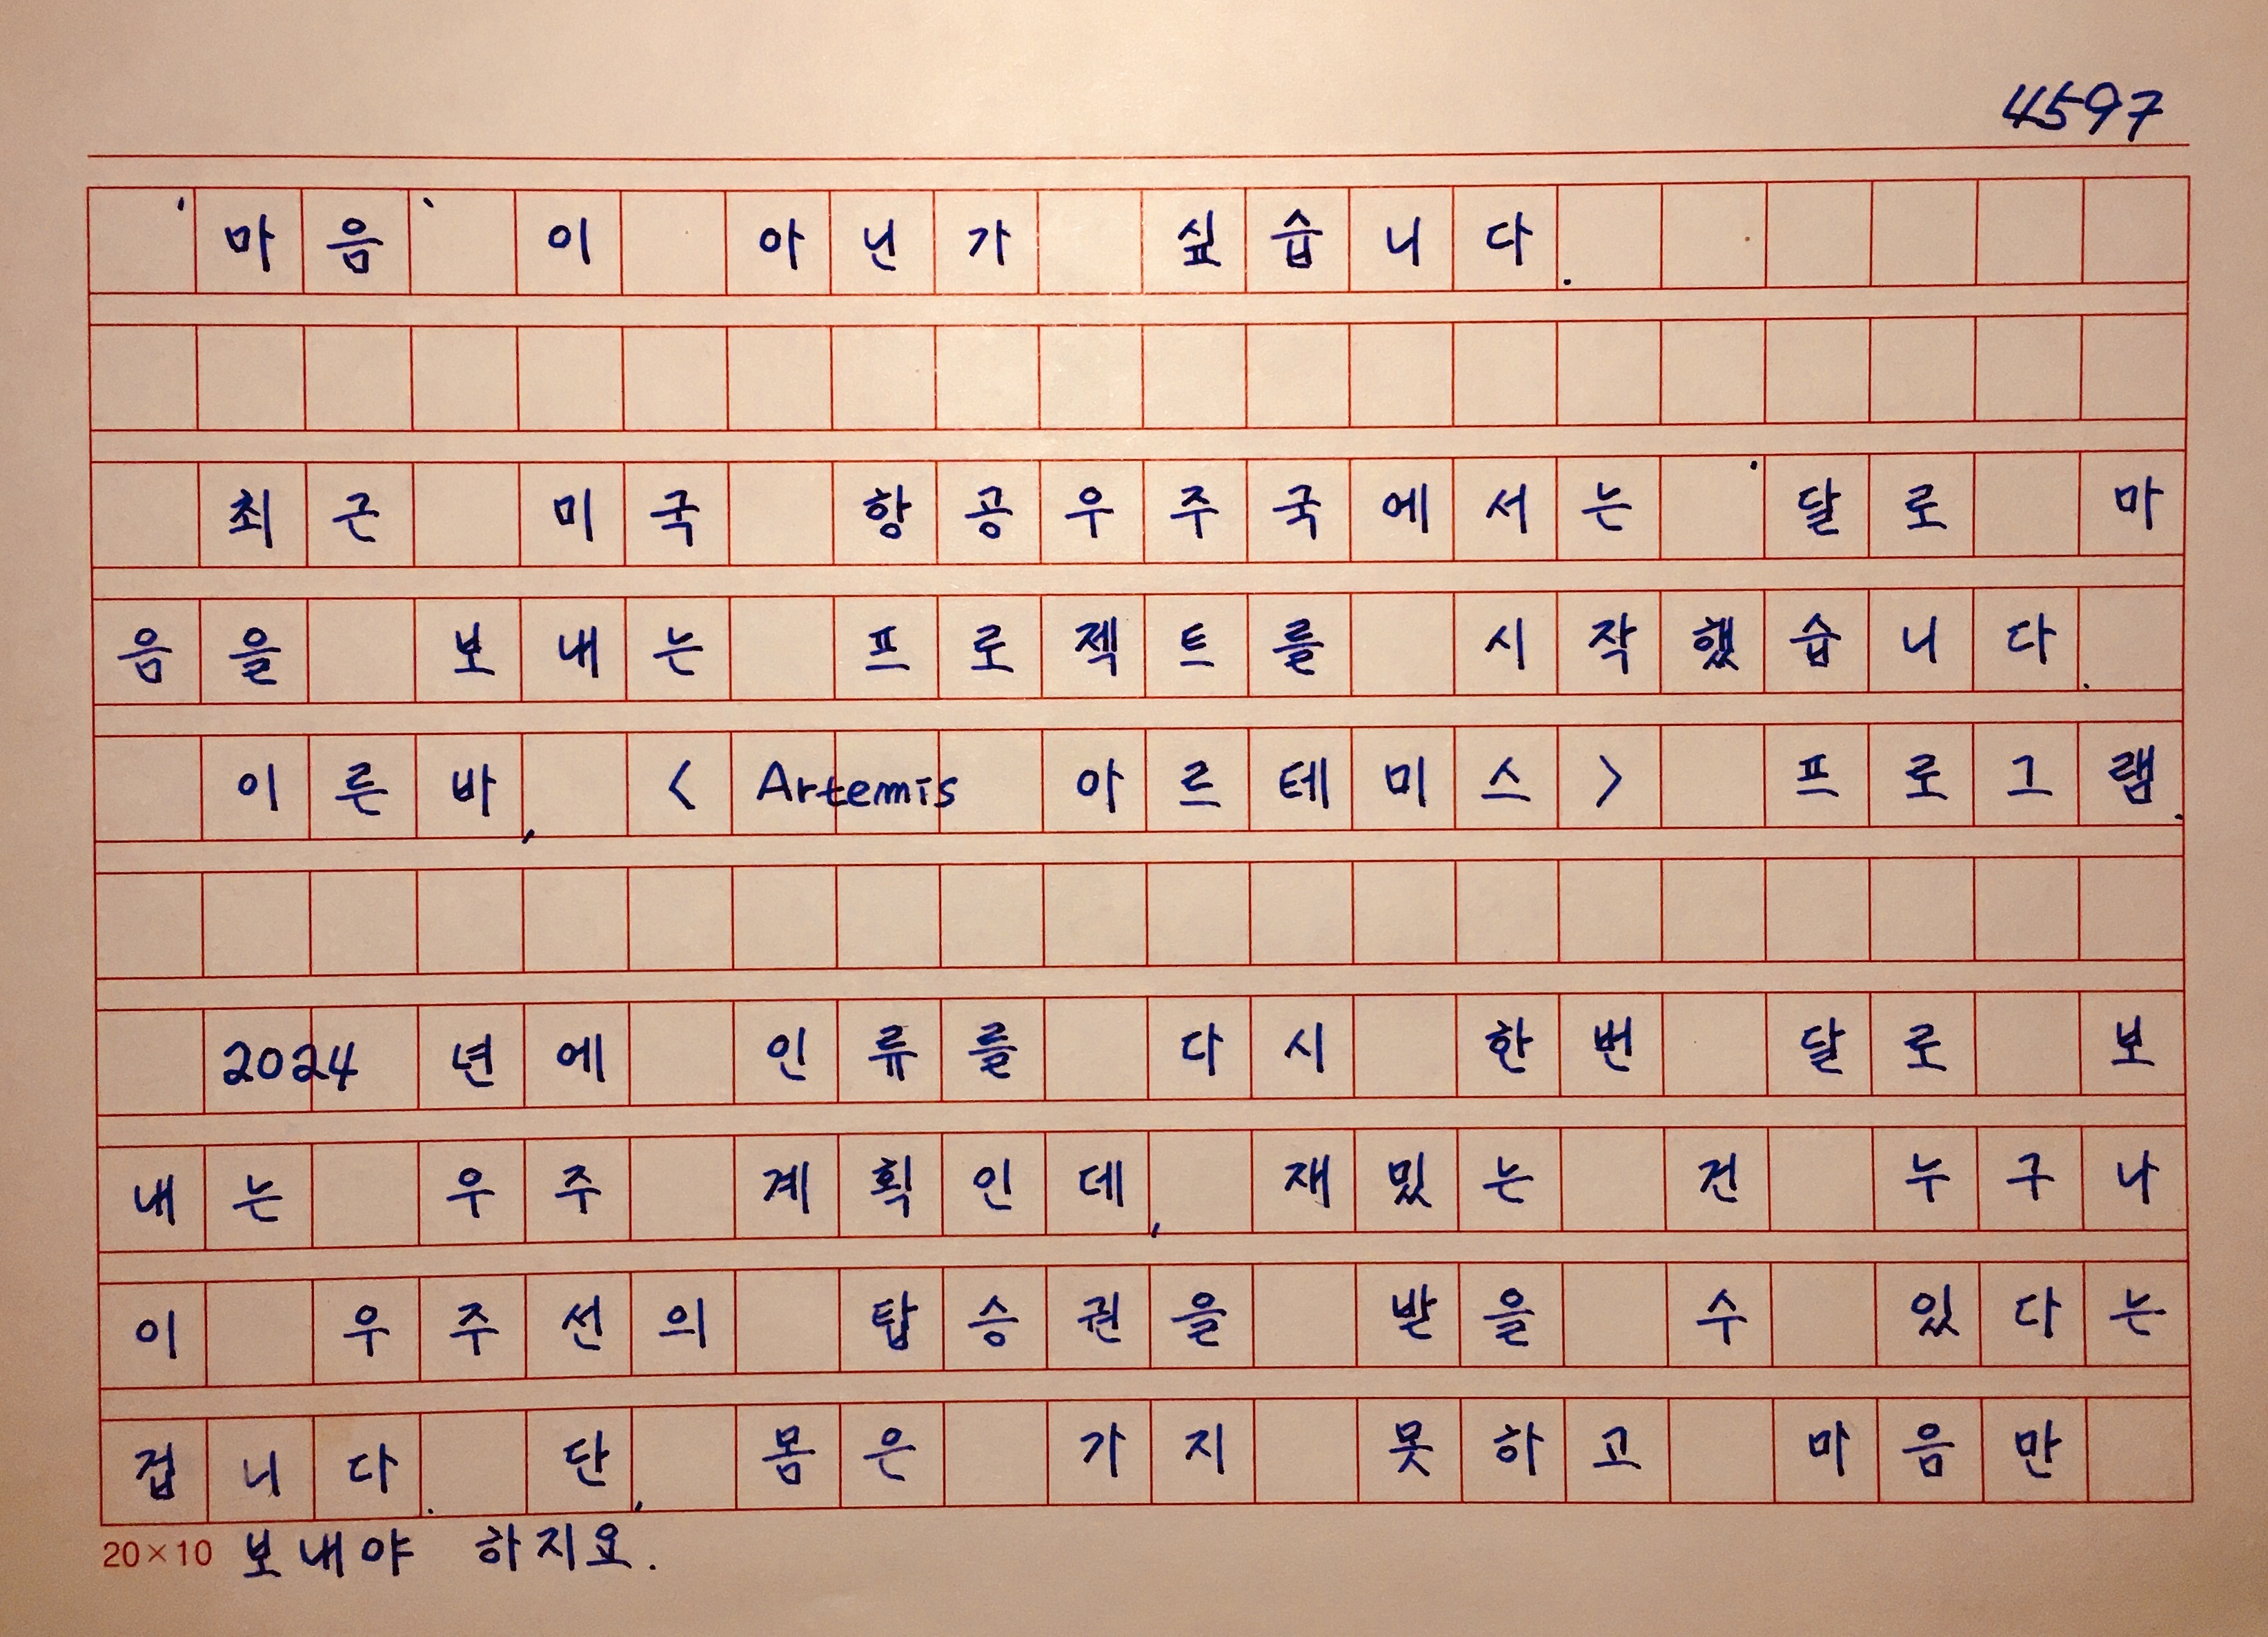 4597
'마음'이 아닌가 싶습니다.
최근 미국 항공우주국에서는 '달로 마
음을 보내는 프로젝트를 시작했습니다.
이른바, <Artemis 아르테미스> 프로그램.
2024년에 인류를 다시 한번 달로 보
내는 우주 계획인데, 재밌는 건 누구나
이 우주선의 탑승권을 받을 수 있다는
겁니다. 단, 몸은 가지 못하고 마음만
20×10 보내야 하지요.